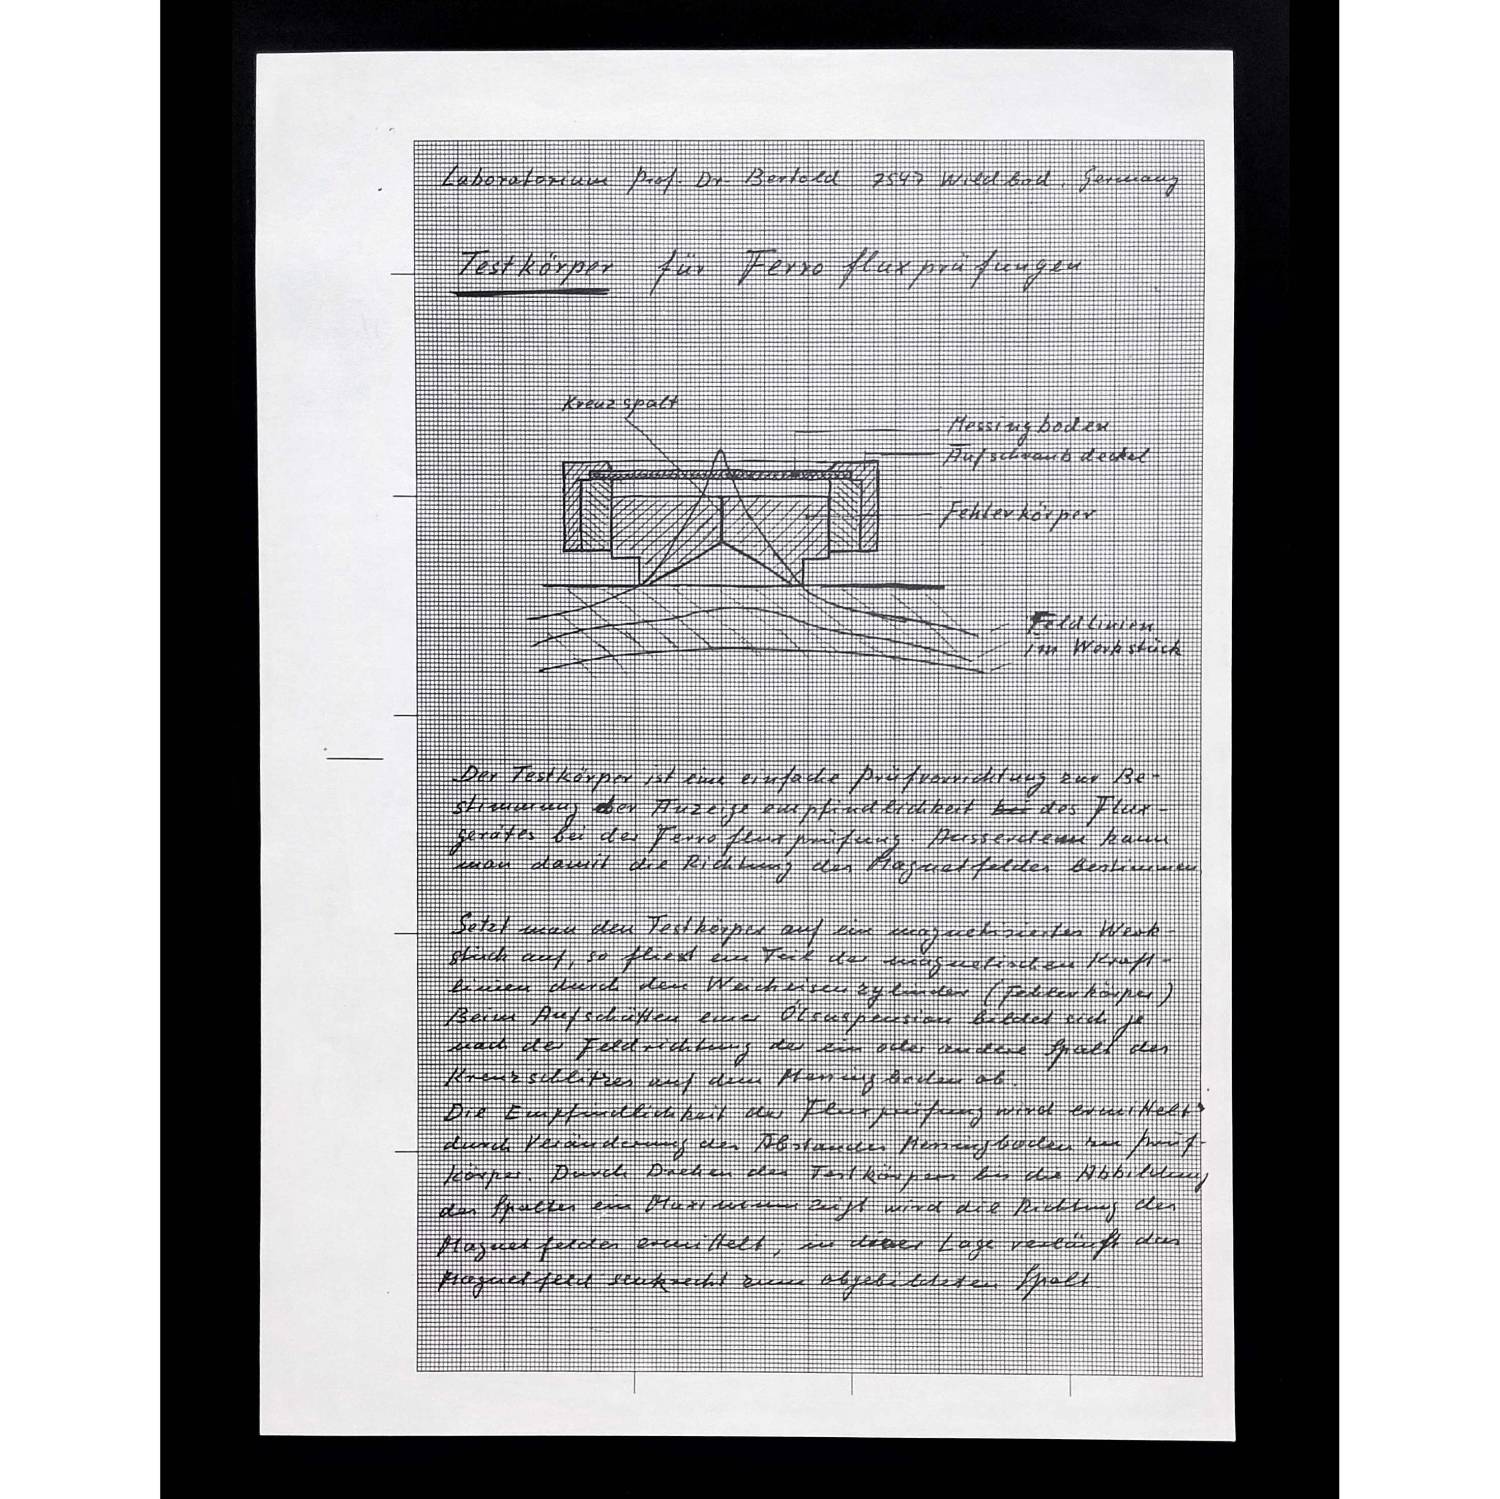 Laboratorium Prof. Dr. Bertold 7547 Wildbad, Germany
Testkörper für Ferrofluxprüfungen
Kreuzspalt
Messingboden
Aufschraubdeckel
Fehlerkörper
Feldlinien
im Werkstück
Der Testkörper ist eine einfache Prüfvorrichtung zur Be-
stimmung der Anzeigeempfindlichkeit des Flux-
gerätes bei der Ferrofluxprüfung. Ausserdem kann
man damit die Richtung des Magnetfeldes bestimmen
Setzt man den Testkörper auf ein magnetisiertes Werk-
stück auf, so fliest ein Teil der magnetischen Kraft-
linien durch den Weicheisenzylinder (Fehlerkörper)
Beim Aufschütten einer Ölsuspension bildet sich je
nach der Feldrichtung der ein oder andere Spalt des
Kreuzschlitzes auf dem Messingboden ab.
Die Empfindlichkeit der Fluxprüfung wird ermittelt
durch Veränderung des Abstandes Messingboden zu Prüf-
körper. Durch Drehen des Testkörpers bis die Abbildung
des Spaltes ein Maximum zeigt wird die Richtung des
Magnetfeldes ermittelt, in dieser Lage verläuft das
Magnetfeld senkrecht zum abgebildeten Spalt.